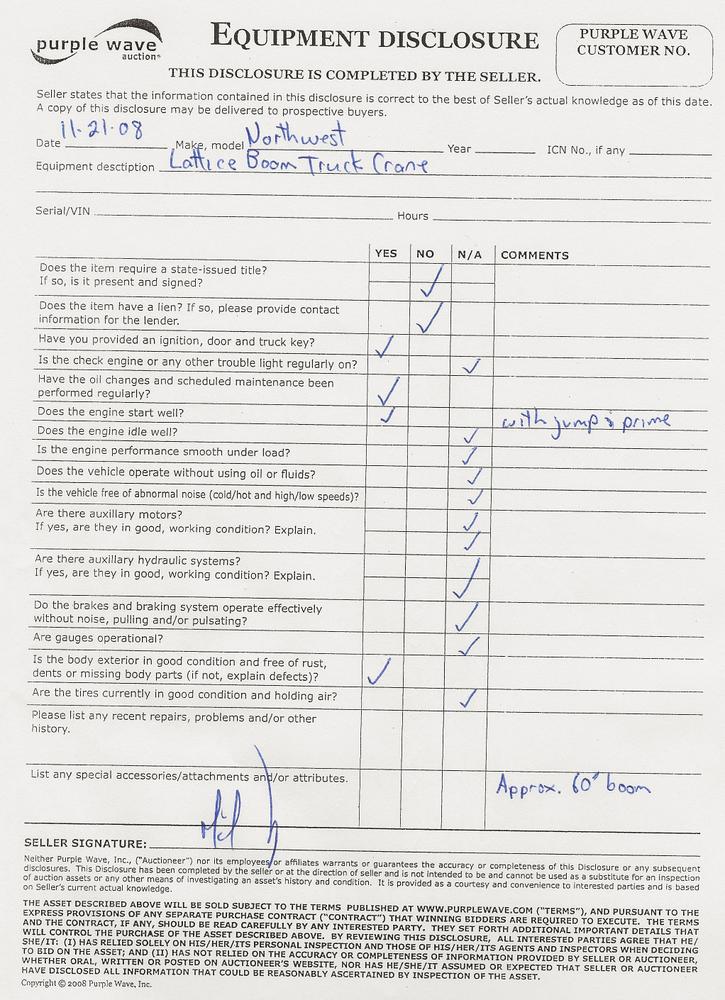 purple wave
auction®
EQUIPMENT DISCLOSURE
PURPLE WAVE
CUSTOMER NO.
THIS DISCLOSURE IS COMPLETED BY THE SELLER.
Seller states that the information contained in this disclosure is correct to the best of Seller's actual knowledge as of this date.
A copy of this disclosure may be delivered to prospective buyers.
Date 11-21-08 Make, model Northwest Year ICN No., if any
Equipment desctiption Lattice Boom Truck Crane
Serial/VIN Hours
YES NO N/A COMMENTS
Does the item require a state-issued title?
If so, is it present and signed? ✓
Does the item have a lien? If so, please provide contact
information for the lender. ✓
Have you provided an ignition, door and truck key? ✓
Is the check engine or any other trouble light regularly on? ✓
Have the oil changes and scheduled maintenance been
performed regularly? ✓
Does the engine start well? ✓ with jump & prime
Does the engine idle well? ✓
Is the engine performance smooth under load? ✓
Does the vehicle operate without using oil or fluids? ✓
Is the vehicle free of abnormal noise (cold/hot and high/low speeds)? ✓
Are there auxillary motors? ✓
If yes, are they in good, working condition? Explain. ✓
Are there auxillary hydraulic systems?
If yes, are they in good, working condition? Explain. ✓
Do the brakes and braking system operate effectively
without noise, pulling and/or pulsating? ✓
Are gauges operational? ✓
Is the body exterior in good condition and free of rust,
dents or missing body parts (if not, explain defects)? ✓
Are the tires currently in good condition and holding air? ✓
Please list any recent repairs, problems and/or other
history.
List any special accessories/attachments and/or attributes. Approx. 60' boom
SELLER SIGNATURE:
Neither Purple Wave, Inc., ("Auctioneer") nor its employees or affiliates warrants or guarantees the accuracy or completeness of this Disclosure or any subsequent
disclosures. This Disclosure has been completed by the seller or at the direction of seller and is not intended to be and cannot be used as a substitute for an inspection
of auction assets or any other means of investigating an asset's history and condition. It is provided as a courtesy and convenience to interested parties and is based
on Seller's current actual knowledge.
THE ASSET DESCRIBED ABOVE WILL BE SOLD SUBJECT TO THE TERMS PUBLISHED AT WWW.PURPLEWAVE.COM ("TERMS"), AND PURSUANT TO THE
EXPRESS PROVISIONS OF ANY SEPARATE PURCHASE CONTRACT ("CONTRACT") THAT WINNING BIDDERS ARE REQUIRED TO EXECUTE. THE TERMS
AND THE CONTRACT, IF ANY, SHOULD BE READ CAREFULLY BY ANY INTERESTED PARTY. THEY SET FORTH ADDITIONAL IMPORTANT DETAILS THAT
WILL CONTROL THE PURCHASE OF THE ASSET DESCRIBED ABOVE. BY REVIEWING THIS DISCLOSURE, ALL INTERESTED PARTIES AGREE THAT HE/
SHE/IT: (I) HAS RELIED SOLELY ON HIS/HER/ITS PERSONAL INSPECTION AND THOSE OF HIS/HER/ITS AGENTS AND INSPECTORS WHEN DECIDING
TO BID ON THE ASSET; AND (II) HAS NOT RELIED ON THE ACCURACY OR COMPLETENESS OF INFORMATION PROVIDED BY SELLER OR AUCTIONEER,
WHETHER ORAL, WRITTEN OR POSTED ON AUCTIONEER'S WEBSITE, NOR HAS HE/SHE/IT ASSUMED OR EXPECTED THAT SELLER OR AUCTIONEER
HAVE DISCLOSED ALL INFORMATION THAT COULD BE REASONABLY ASCERTAINED BY INSPECTION OF THE ASSET.
Copyright © 2008 Purple Wave, Inc.